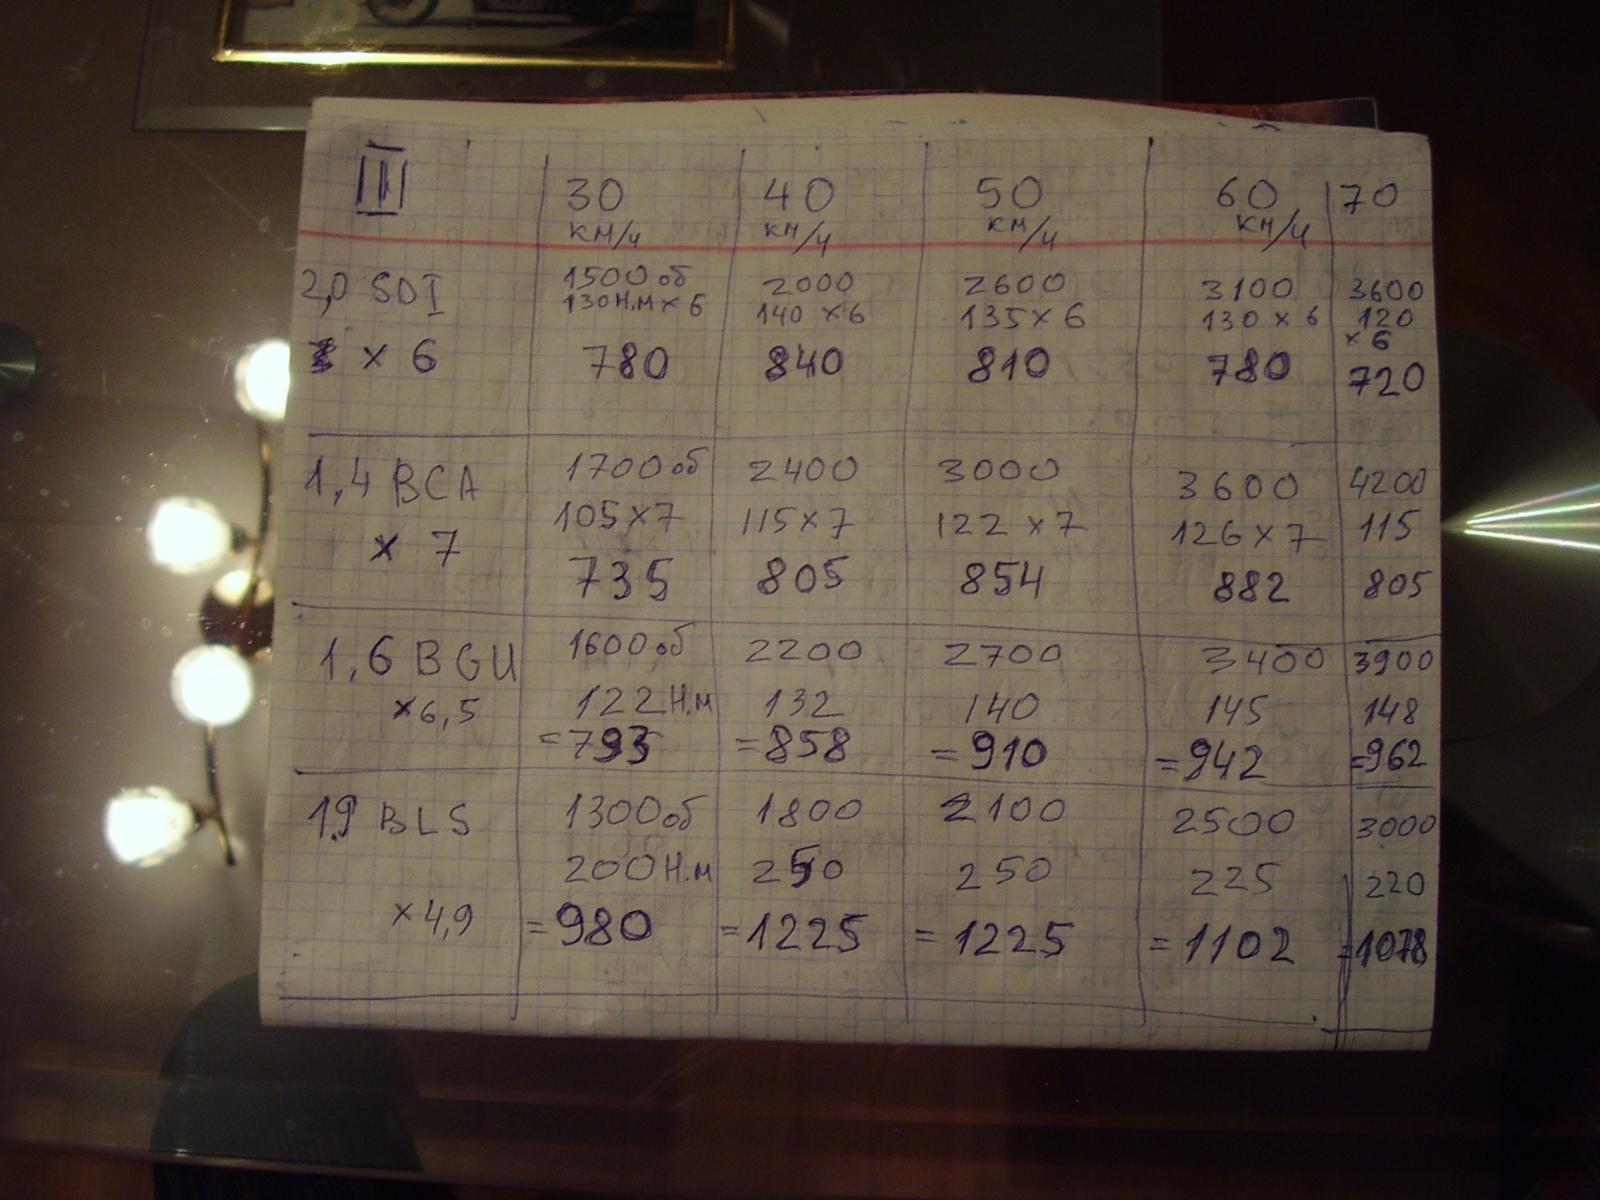 III 30 40 50 60 70
км/ч км/ч км/ч км/ч
2,0 SDI 1500 об 2000 2600 3100 3600
130 Н.м х 6 140 х 6 135 х 6 130 х 6 120
х 6
х 6 780 840 810 780 720
1,4 BCA 1700 об 2400 3000 3600 4200
105 х 7 115 х 7 122 х 7 126 х 7 115
х 7 735 805 854 882 805
1,6 BGU 1600 об 2200 2700 3400 3900
х 6,5 122 Н.м 132 140 145 148
= 793 = 858 = 910 = 942 = 962
1,9 BLS 1300 об 1800 2100 2500 3000
200 Н.м 250 250 225 220
х 4,9 = 980 = 1225 = 1225 = 1102 = 1078